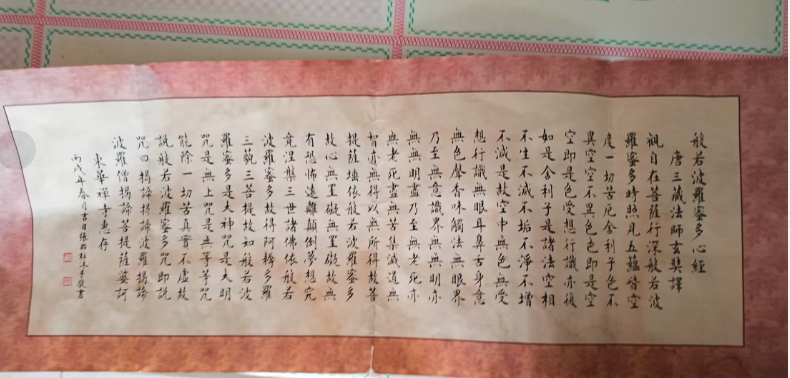 般若波羅蜜多心經
唐三藏法師玄奘譯
觀自在菩薩行深般若波
羅蜜多時照見五蘊皆空
度一切苦厄舍利子色不
異空空不異色色即是空
空即是色受想行識亦復
如是舍利子是諸法空相
不生不滅不垢不淨不增
不減是故空中無色無受
想行識無眼耳鼻舌身意
無色聲香味觸法無眼界
乃至無意識界無無明亦
無無明盡乃至無老死亦
無老死盡無苦集滅道無
智亦無得以無所得故菩
提薩埵依般若波羅蜜多
故心無罣礙無罣礙故無
有恐怖遠離顛倒夢想究
竟涅槃三世諸佛依般若
波羅蜜多故得阿耨多羅
三藐三菩提故知般若波
羅蜜多是大神咒是大明
咒是無上咒是無等等咒
能除一切苦真實不虛故
說般若波羅蜜多咒即說
咒曰揭諦揭諦波羅揭諦
波羅僧揭諦菩提薩婆訶
東華禪寺惠存
丙戌年月吉日張沐手敬書